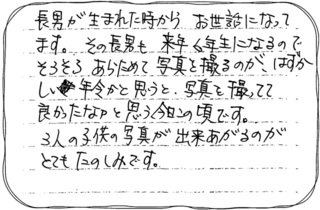 長男が生まれた時から お世話になって
ます。その長男も 来年6年生になるので
そろそろ あらためて 写真を撮るのが、はずか
しい年令かと思うと、写真を撮ってて
良かったなァと思う今日この頃です。
3人の子供の写真が出来あがるのが
とてもたのしみです。